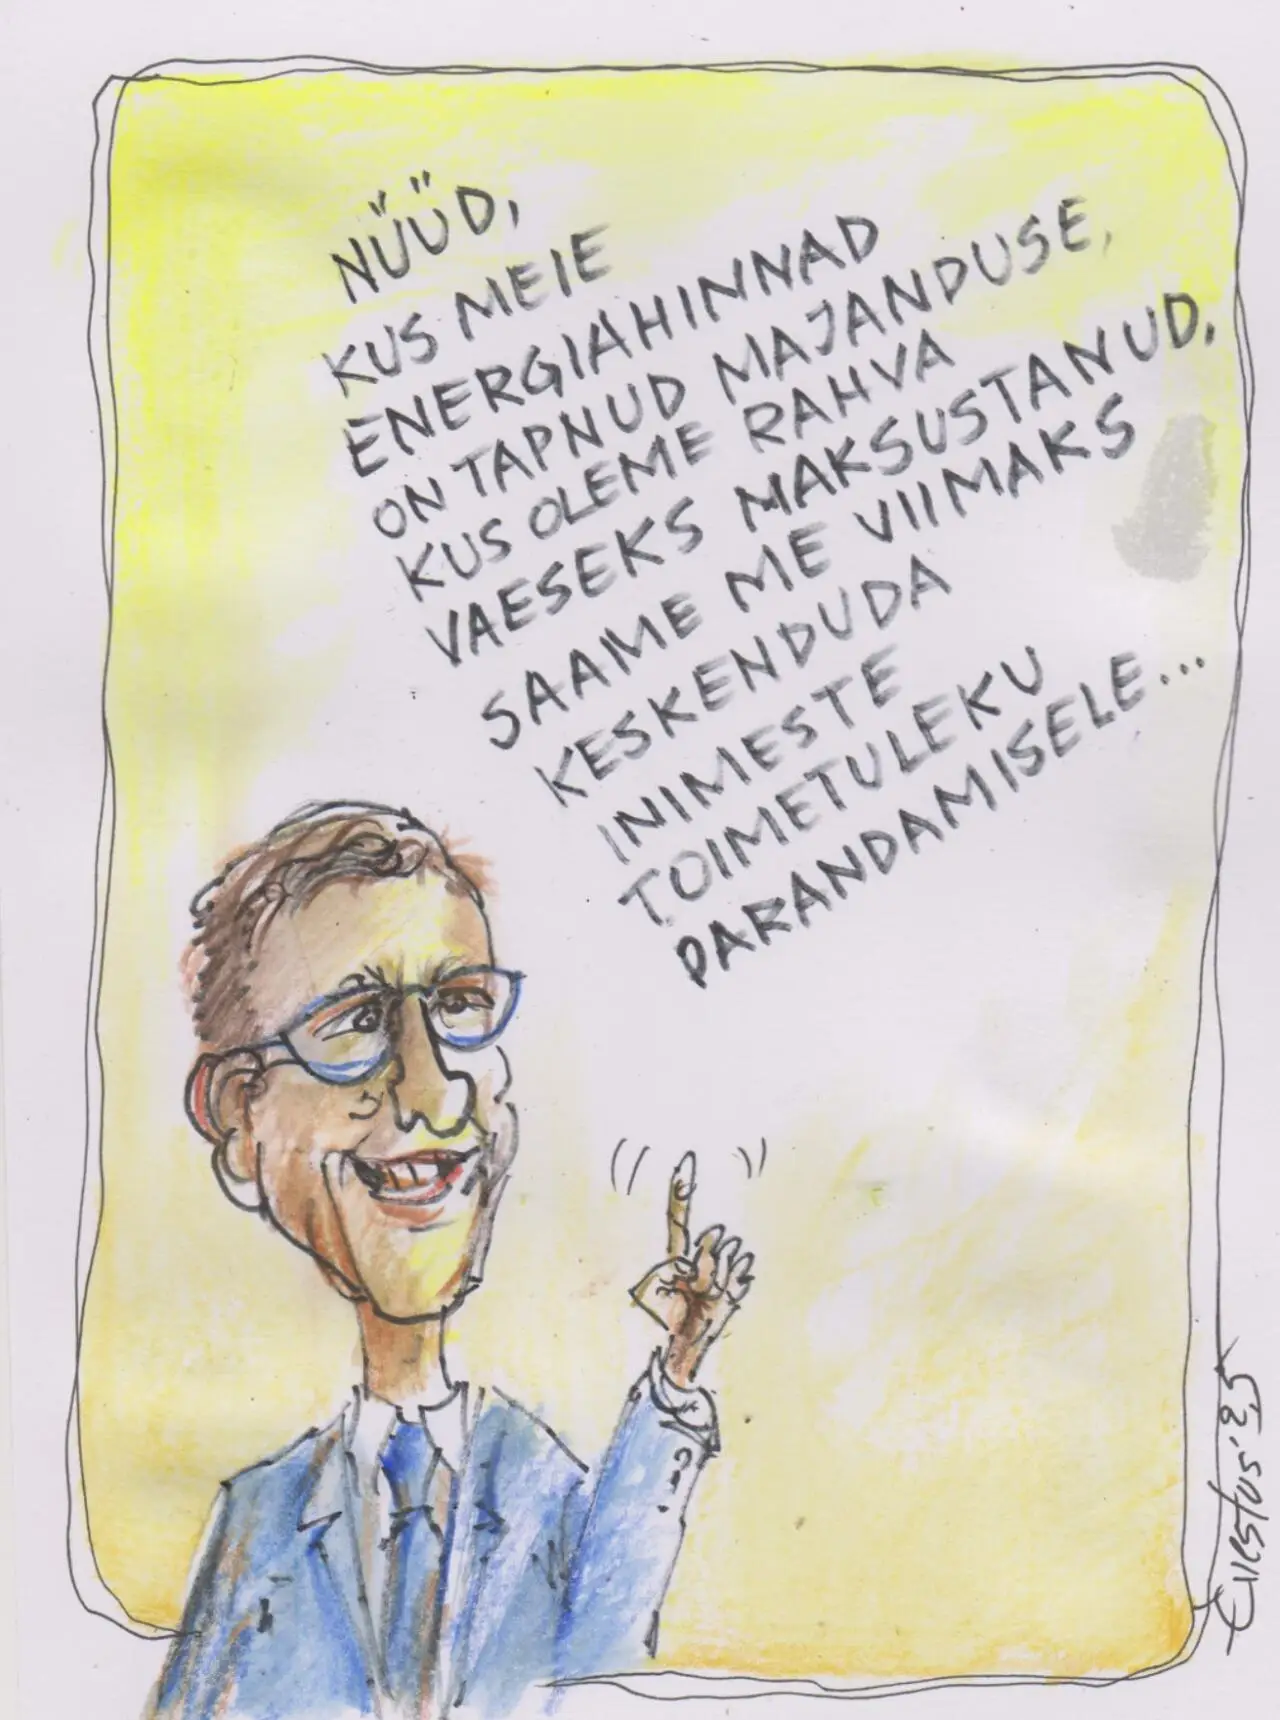 NÜÜD,
KUS MEIE
ENERGIAHINNAD
ON TAPNUD MAJANDUSE,
KUS OLEME RAHVA
VAESEKS MAKSUSTANUD,
SAAME ME VIIMAKS
KESKENDUDA
INIMESTE
TOIMETULEKU
PARANDAMISELE...